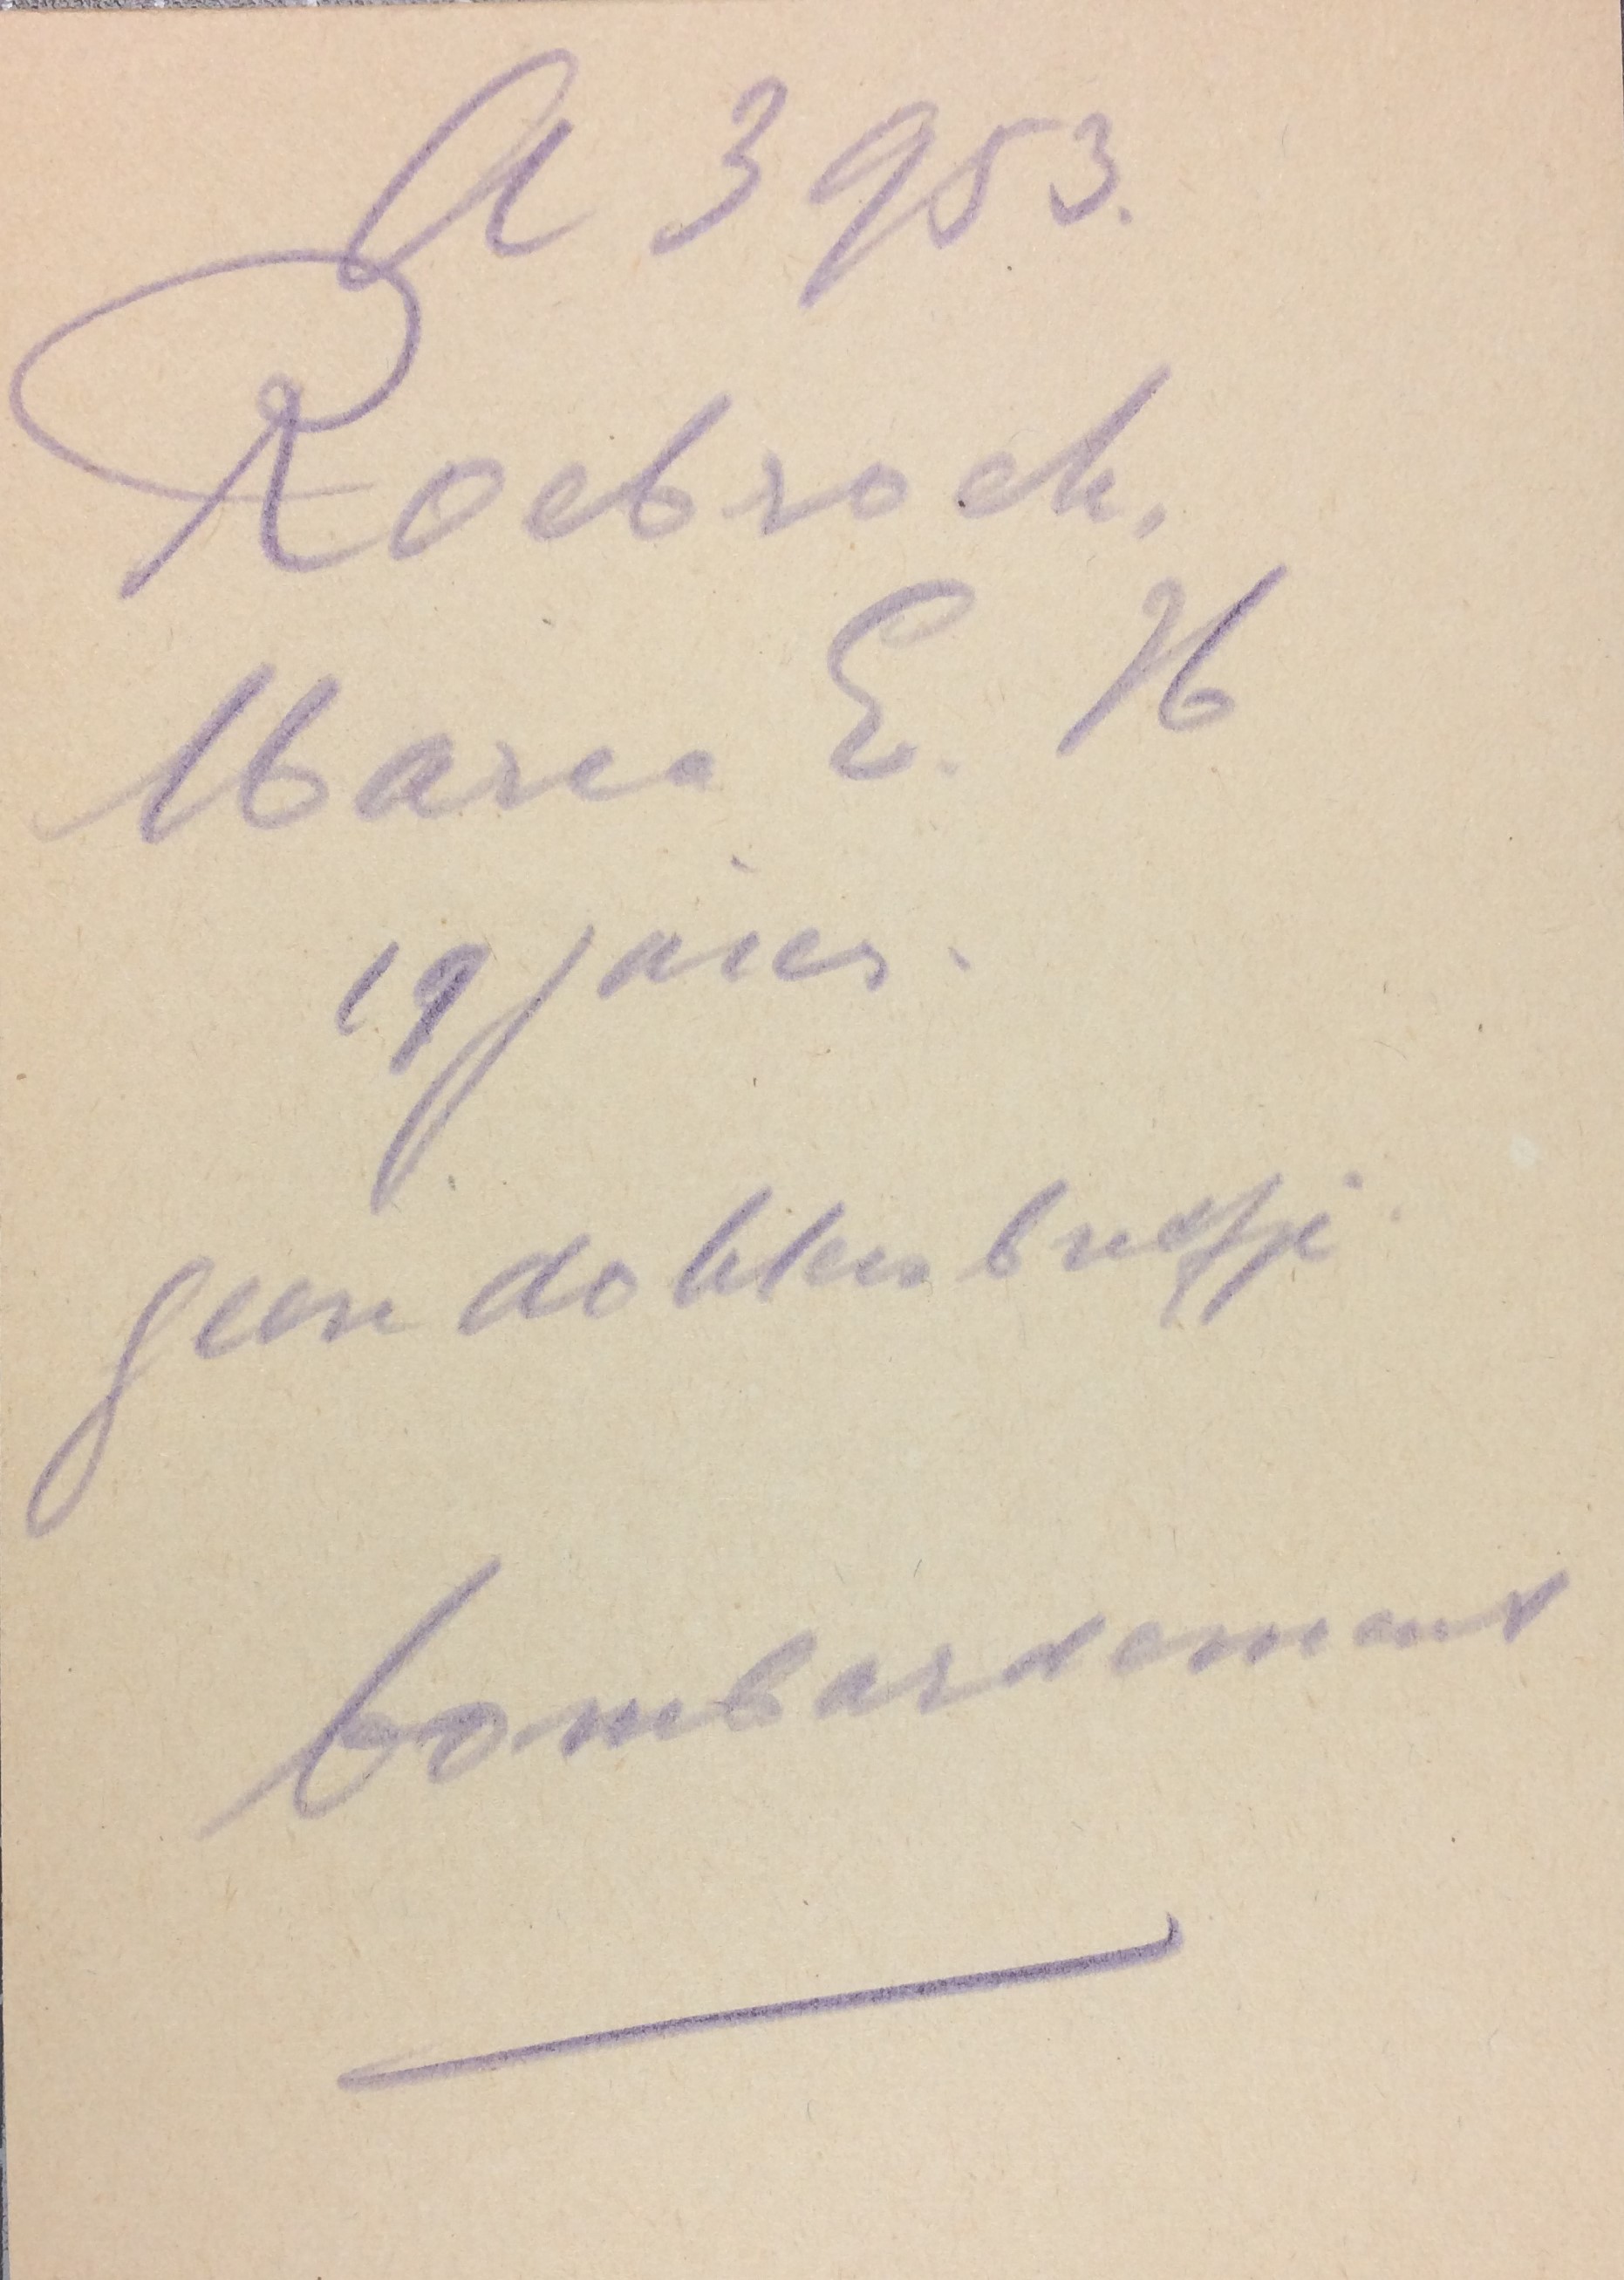 A 3953.
Roebroek,
Maria E. H
19 jaren.
geen doktersbriefje.
bombardement